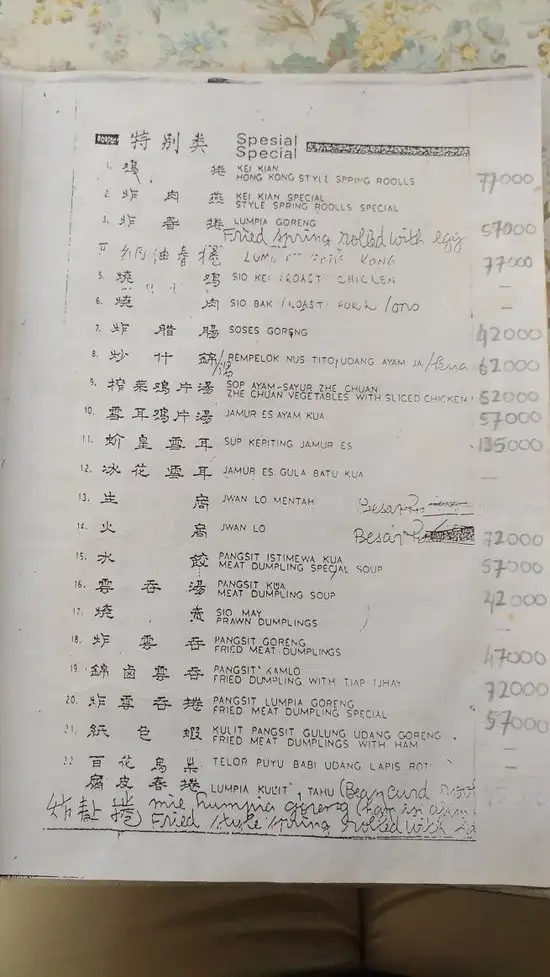 特别类 Spesial
Special
1. 鸡 捲 KEI KIAN
HONG KONG STYLE SPRING ROOLLS 77000
2. 炸肉燕 KEI KIAN SPECIAL
STYLE SPRING ROOLLS SPECIAL
3. 炸春捲 LUMPIA GORENG 57000
Fried spring rolled with egg
油春捲 KONG 77000
5. 燒鸡 SIO KEI (ROAST CHICKEN –
6. 燒肉 SIO BAK –
7. 炸腊腸 SOSES GORENG 42000
8. 炒什錦/湯 REMPELOK NUS TITO, UDANG AYAM JA /kua 62000
9. 榨菜鸡片湯 SOP AYAM-SAYUR ZHE CHUAN
ZHE CHUAN VEGETABLES WITH SLICED CHICKEN 52000
10. 雪耳鸡片湯 JAMUR ES AYAM KUA 57000
11. 蚧皇雪耳 SUP KEPITING JAMUR ES 135000
12. 冰花雪耳 JAMUR ES GULA BATU KUA –
13. 生窩 JWAN LO MENTAH Besar
14. 火窩 JWAN LO Besar 72000
15. 水餃 PANGSIT ISTIMEWA KUA
MEAT DUMPLING SPECIAL SOUP 57000
16. 雲吞湯 PANGSIT KUA
MEAT DUMPLING SOUP 42000
17. 燒卖 SIO MAY
PRAWN DUMPLINGS –
18. 炸雲吞 PANGSIT GORENG
FRIED MEAT DUMPLINGS 47000
19. 錦卤雲吞 PANGSIT KAMLO
FRIED DUMPLING WITH TJAP TJHAY 72000
20. 炸雲吞捲 PANGSIT LUMPIA GORENG
FRIED MEAT DUMPLING SPECIAL 57000
21. 紙包蝦 KULIT PANGSIT GULUNG UDANG GORENG
FRIED MEAT DUMPLINGS WITH HAM –
22. 百花鳥巢 TELOR PUYU BABI UDANG LAPIS ROTI –
腐皮春捲 LUMPIA KULIT, TAHU (Beancurd
mie Lumpia goreng
Fried style spring rolled with